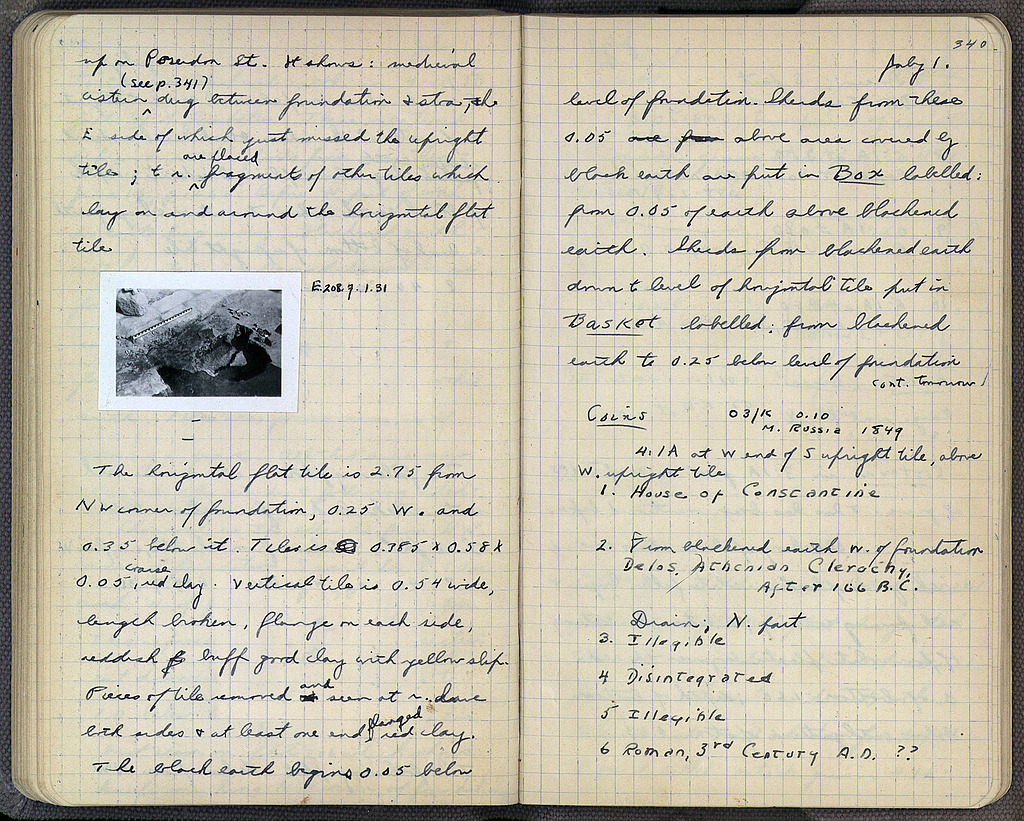 up on Poseidon St. It shows: medieval
(see p. 341)
cistern dug between foundation & stoa, the
E side of which just missed the upright
are placed
tile; to r. fragments of other tiles which
lay on and around the horizontal flat
tile
E.208.9.1.31
The horizontal flat tile is 2.75 from
NW corner of foundation, 0.25 W. and
0.35 below it. Tile is 0.385 x 0.58 x
coarse
0.05, red clay. Vertical tile is 0.54 wide,
length broken, flange on each side,
reddish buff good clay with yellow slip.
and
Pieces of tile removed seen at r. have
flanged
both sides & at least one end, red clay.
The black earth begins 0.05 below
340
July 1.
level of foundation. Sherds from these
0.05 above area covered by
black earth are put in Box labelled:
from 0.05 of earth above blackened
earth. Sherds from blackened earth
down to level of horizontal tile put in
Basket labelled: from blackened
earth to 0.25 below level of foundation
cont. tomorrow
Coins 03/K 0.10
M. Russia 1849
4.1A at W end of S upright tile, above
W. upright tile
1. House of Constantine
2. From blackened earth W. of foundation
Delos, Athenian Clerochy,
After 166 B.C.
Drain, N. part
3. Illegible
4 Disintegrated
5 Illegible
6 Roman, 3rd Century A.D. ??